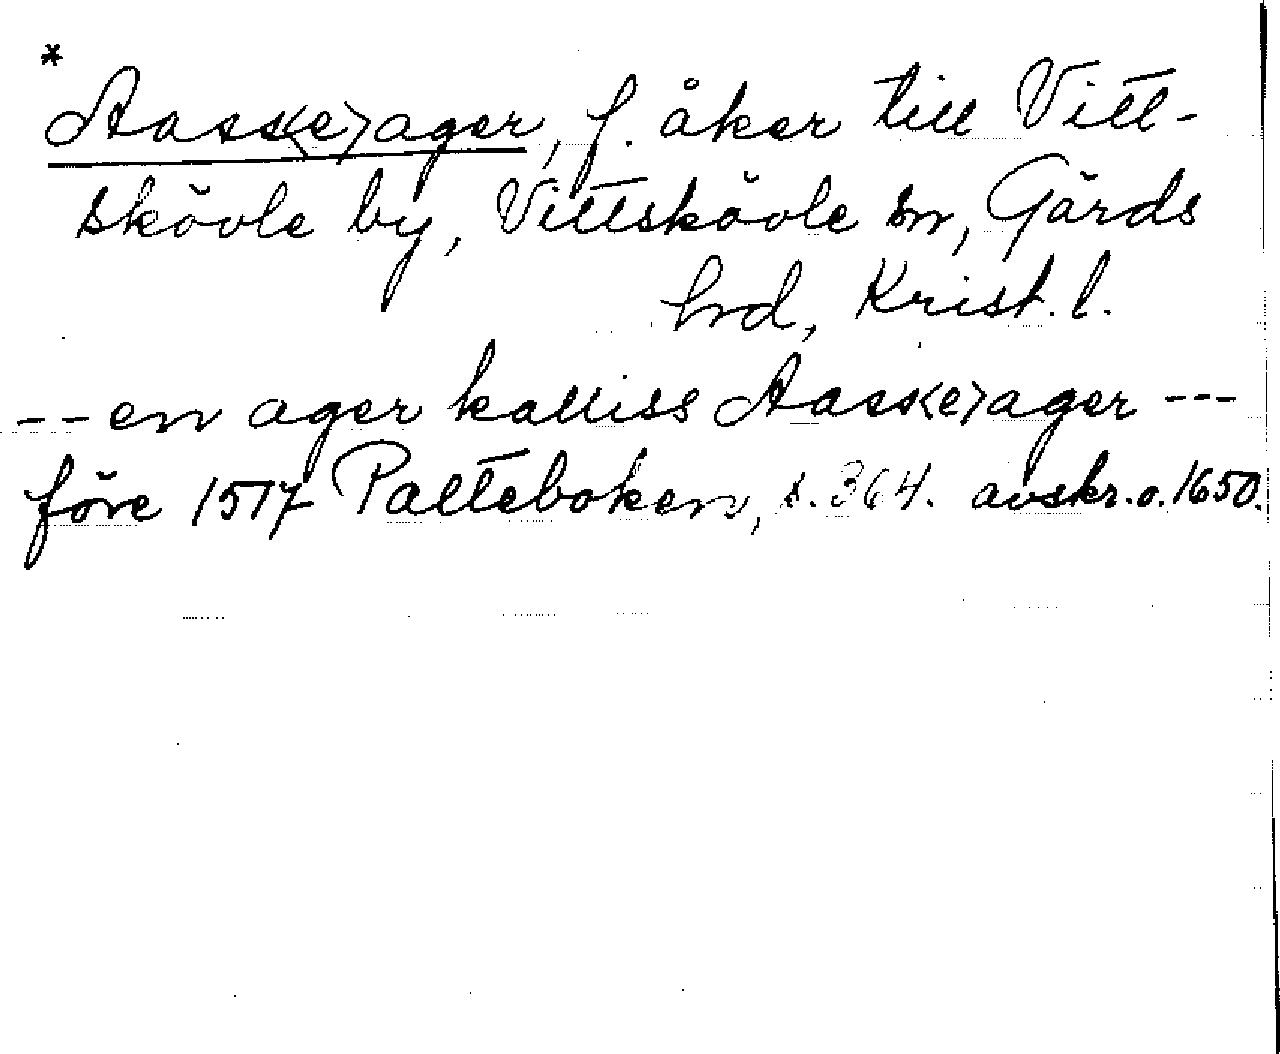 *
Aass<e>ager, f. åker till Vitt-
skövle by, Vittskövle sn, Gärds
hrd, Krist. l.
-- en ager kalliss Aass<e>ager ---
före 1517 Palteboken, s. 364. avskr. o. 1650.